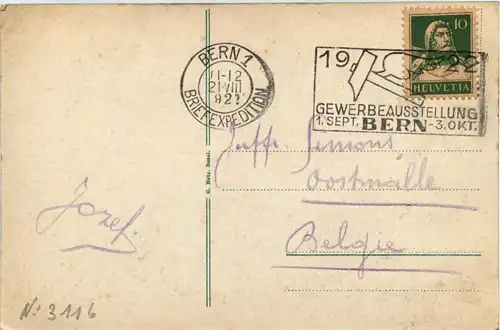 BERN 1
11-12
21 VIII
922
BRIEFEXPEDITION
19 22
GEWERBEAUSSTELLUNG
1. SEPT. BERN - 3. OKT.
10
HELVETIA
Juffr. Simons
Oostmalle
Belgie
Jozef.
G. Metz, Basel.
No 3116